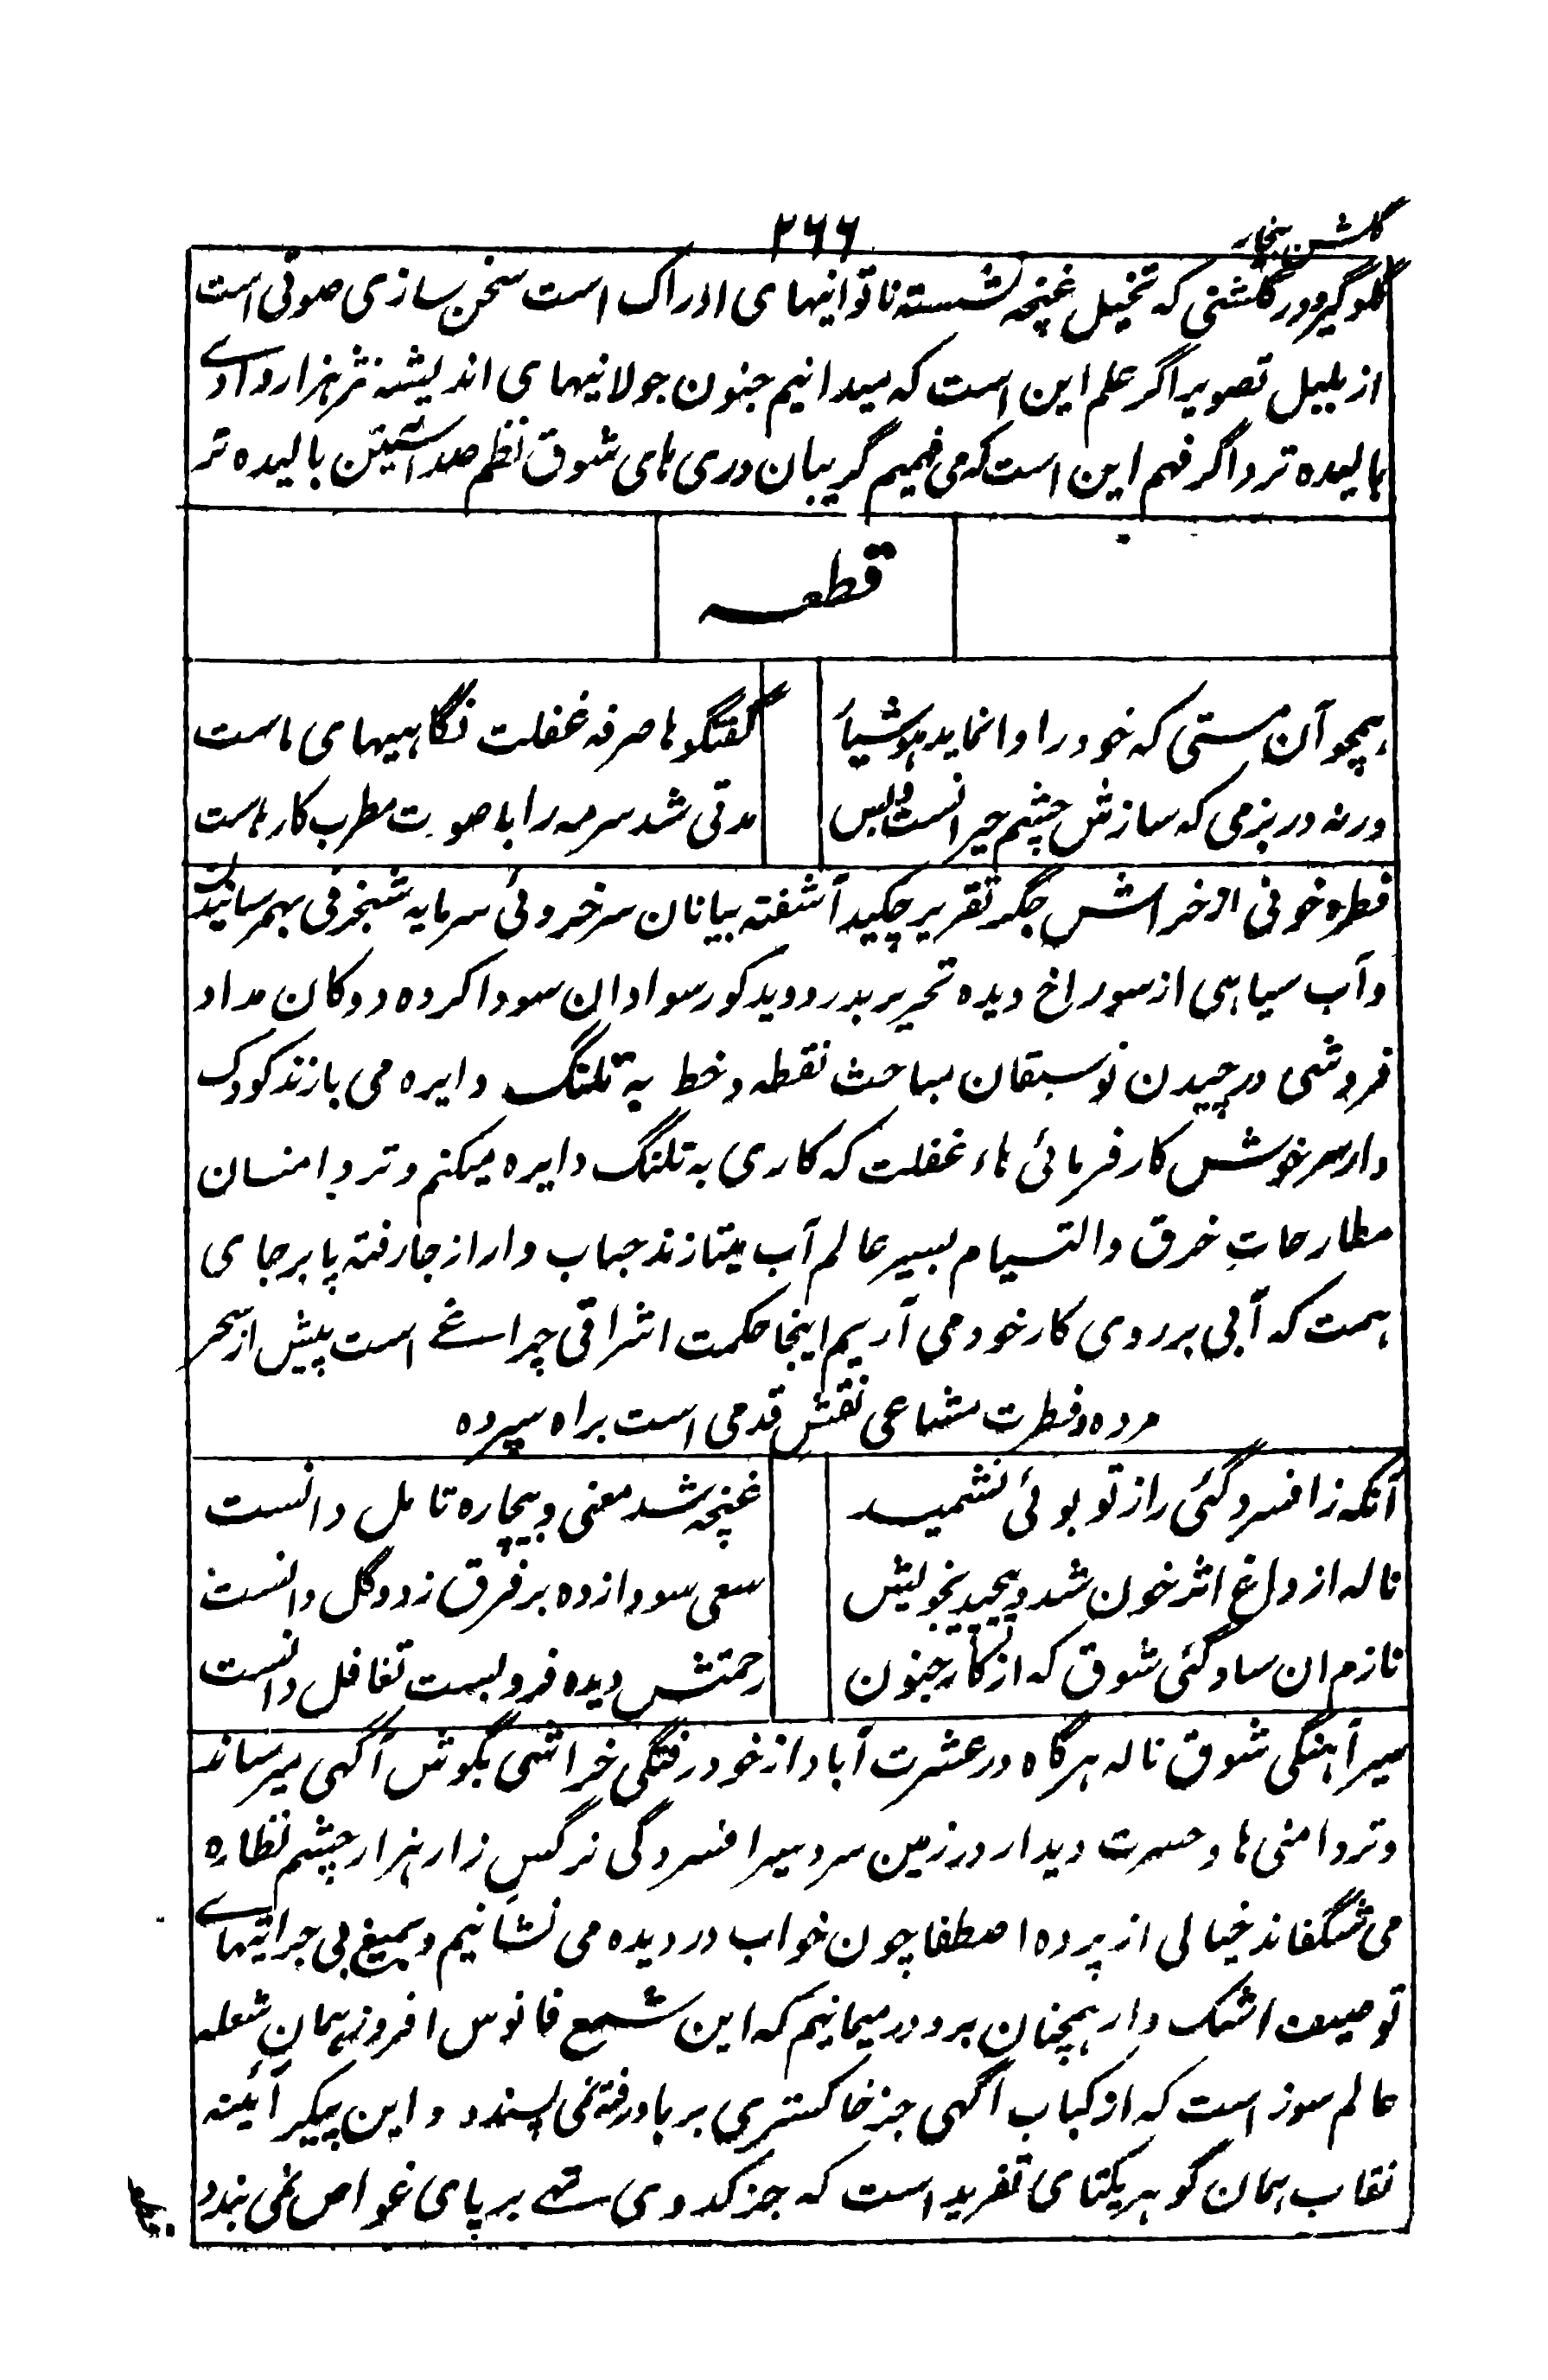 گلشن بیخار
۲۶۶
گلو گیر و در گلشنی که تخیل غنچه نشسته ناتوانیهای ادراک است سخن سازی صوتی است
از بلبل تصویر اگر علم این است که میدانیم جنون جولانیهای اندیشه نثر هزار وادی
بالیده تر و اگر فهم این است که می فهمیم گریبان دری های شوق نظم صد آستین بالیده تر
قطعه
همچو آن مستی که خود را وا نماید هوشیار
گفتگوها صرفه غفلت نگاهیهای ماست
ورنه در بزمی که سازش چشم حیرانست و بس
مدتی شد سرمه را با صوت مطرب کارهاست
قطره خونی از خراش جگر تقریر چکید آشفته بیانان سرخروئی سرمایه شنجرفی بهمرسانیدند
و آب سیاهی از سوراخ دیده تحریر بدر دوید کور سوادان سودا کرده دوکان مداد
فروشی در چیدن نوسبقان مباحث نقطه و خط به تلنگ دایره می بازند کودک
وار سرخوش کارفرمائی هاء غفلت که کاری به تلنگ دایره میکنم و تر دامنسان
مطارحاتِ خرق و التیام بسیر عالم آب میتازند حباب وار از جا رفته پا بر جای
همت که آبی بر روی کار خود می آریم اینجا حکمت اشراقی چراغے است پیش از سحر
مرده و فطرت مشاعی نقش قدمی است براه سپرده
آنکه ز افسردگئی راز تو بوئی نشمید
غنچه شد معنی و بیچاره تامل دانست
ناله از داغ اثر خون شد و پیچید بخویش
سعی سودا زده بر فرق زد و گل دانست
نازم ان سادگئی شوق که از کار جنون
رحمتش دیده فرو بست تغافل دانست
سیرآهنگی شوق ناله هر گاه در عشرت آباد از خود رفتگی خراشی بگوش آگهی میرساند
و تر دامنی ها و حسرت دیدار در زمین سردسیر افسردگی نرگس زار هزار چشم نظاره
می شگفاند خیالی از پرده اصطفا چون خواب در دیده می نشانیم و بمیغ بی جراتیهای
توصیف اشک وار همچنان بر دور میمانیم که این شمع فانوس افروز همان شعله
عالم سوز است که از کباب آگهی جز خاکستری بر باد رفته نمی پسندد و این پیکر آئینه
نقاب همان گوهر یکتای تفرید است که جز کدوی تهے بر پای غواص نمی بندد